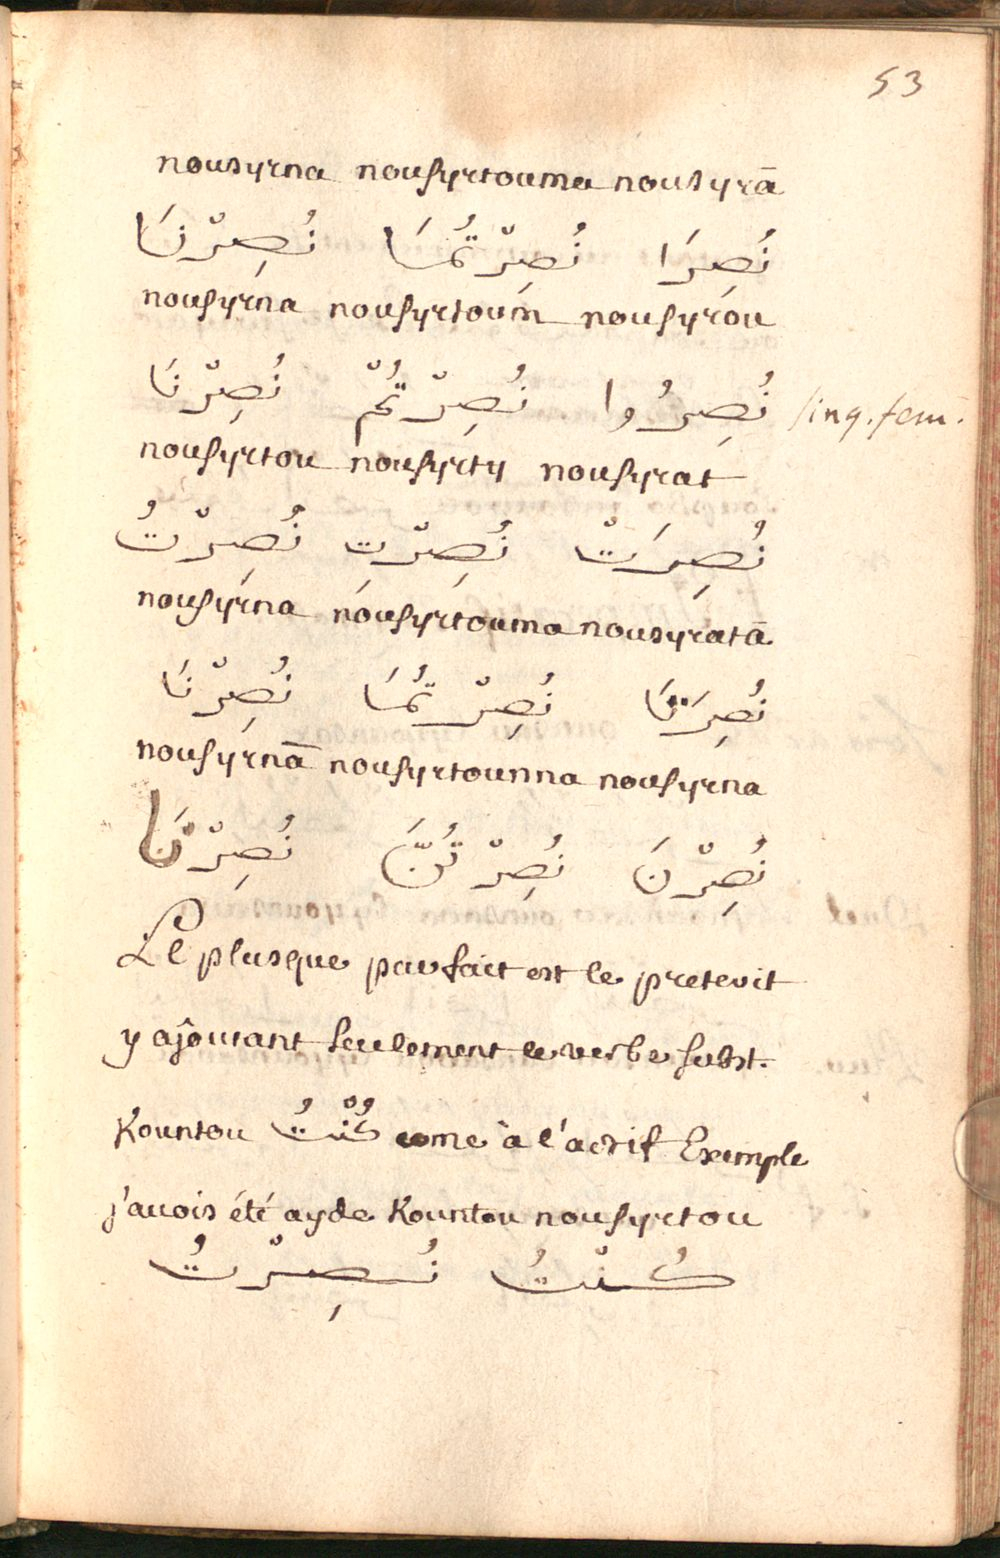 53
nousyrna nousyrtouma nousyrā
نُصِرَا نُصِرْتُمَا نُصِرْنَا
nousyrna nousyrtoum nousyrou
نُصِرُوا نُصِرْتُمْ نُصِرْنَا sing. fem.
nousyrtou nousyrty nousyrat
نُصِرَتْ نُصِرْتِ نُصِرْتُ
nousyrna nousyrtouma nousyratā
نُصِرَتَا نُصِرْتُمَا نُصِرْنَا
nousyrnā nousyrtounna nousyrna
نُصِرْنَ نُصِرْتُنَّ نُصِرْنَا
Le plusque parfait est le preterit
y ajoutant seulement le verbe subst.
Kountou كُنْتُ come à l'actif Exemple
j'avois été aydé Kountou nousyrtou
كُنْتُ نُصِرْتُ